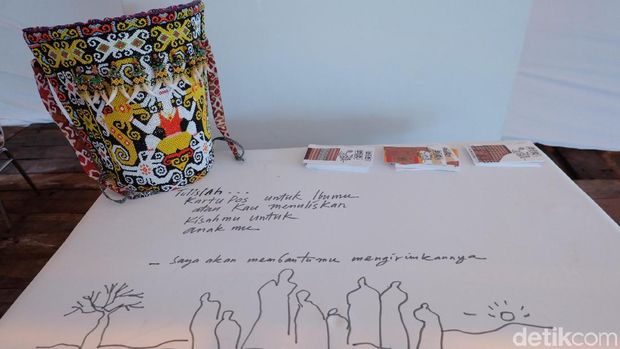 Tulislah . . .
Kartu Pos untuk Ibumu
atau Kau menuliskan
Kisahmu untuk
anak mu
— Saya akan membantumu mengirimkannya
detikcom